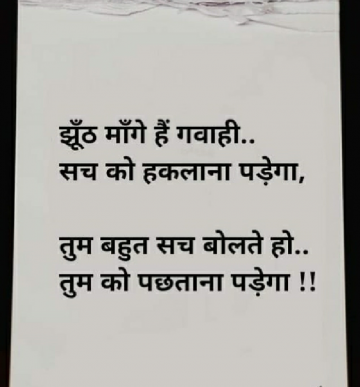 झूँठ माँगे हैं गवाही..
सच को हकलाना पड़ेगा,
तुम बहुत सच बोलते हो..
तुम को पछताना पड़ेगा !!